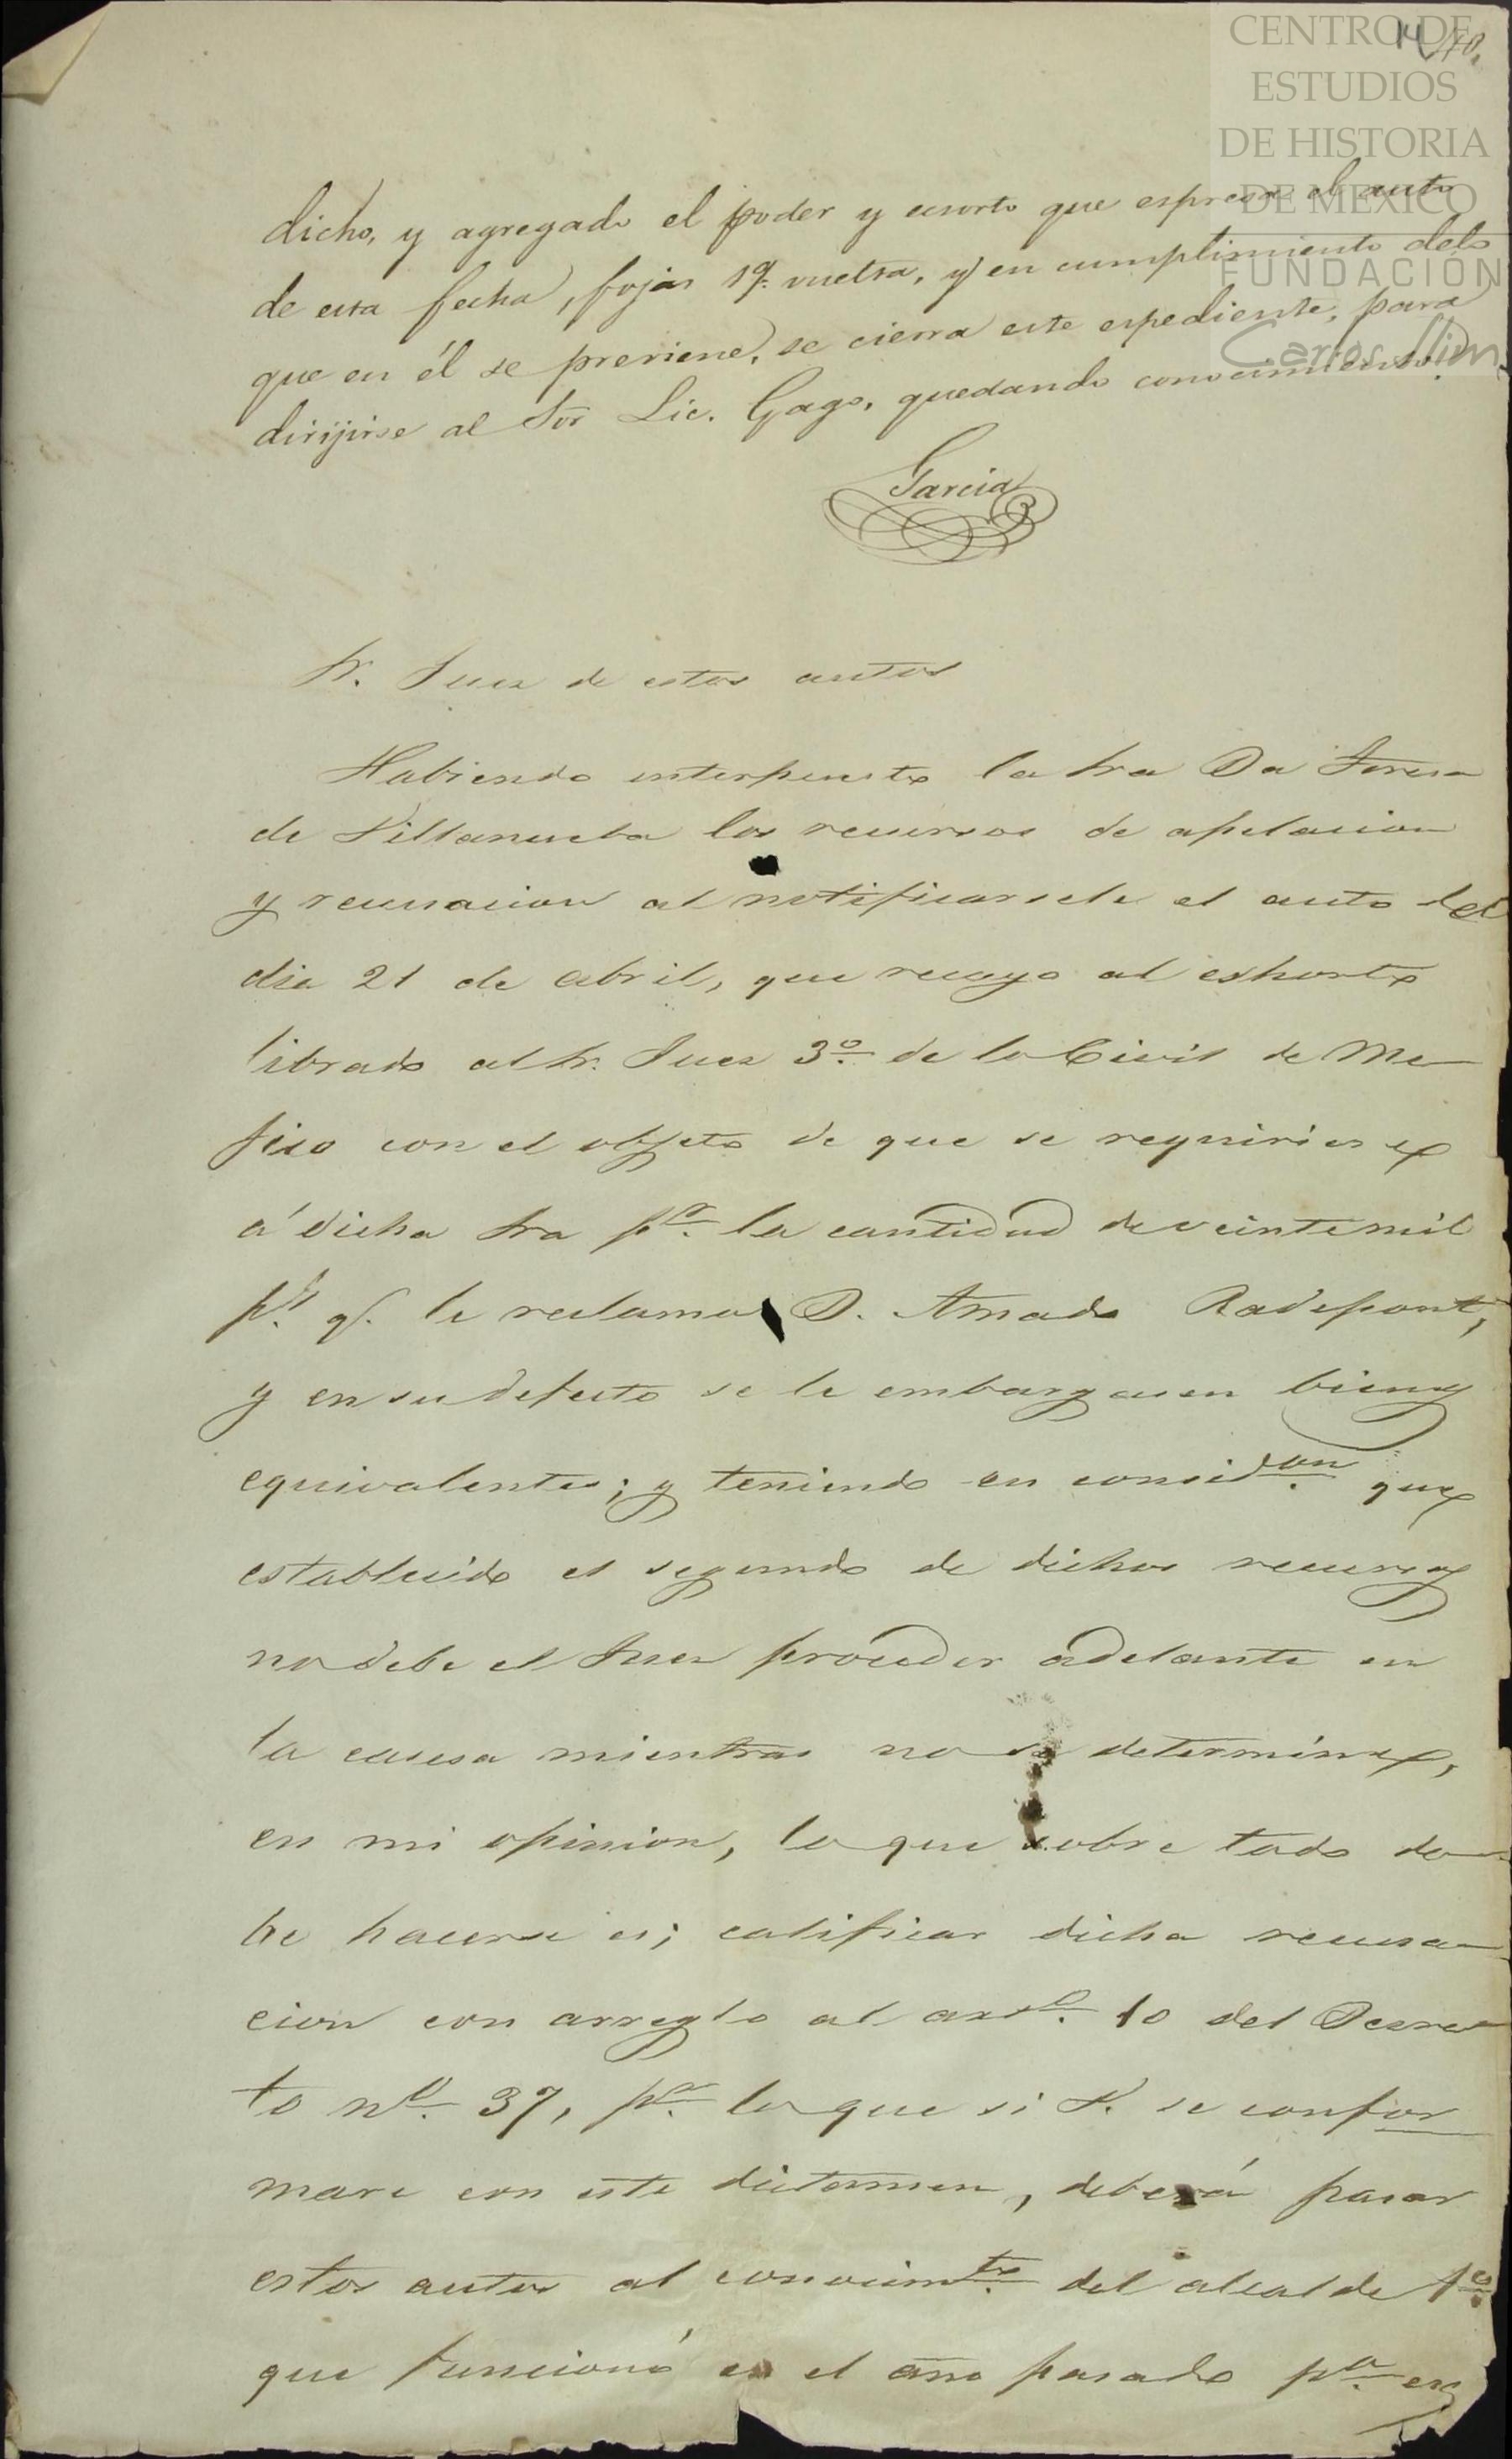 CENTRO DE
ESTUDIOS
DE HISTORIA
DE MEXICO
FUNDACIÓN
Carlos Slim
dicho, y agregado el poder y escrito que espresa el auto
de esta fecha, fojas 19. vuelta, y en cumplimiento de lo
que en él se previene, se cierra este espediente, para
dirijirse al Sor Lic. Gago, quedando conocimiento.
Garcia
Sr. Juez de estos autos
Habiendo interpuesto la Sra Da Teresa
de Villanueba los recursos de apelacion
y recusacion al notificarsele el auto del
dia 21 de abril, que recayo al exhorto
librado al Sr. Juez 3º de lo Civil de Me
jico con el objeto de que se requiriese
á dicha Sra pr. la cantidad de veinte mil
ps. q. le reclama D. Amado Radepont,
y en su defecto se le embargasen bienes
equivalentes; y teniendo en considon. que
establecido el segundo de dichos recursos
no debe el Juez proceder adelante en
la causa mientras no se determine,
en mi opinion, lo que sobre todo de
be hacerse es; calificar dicha recusa
cion con arreglo al arto. 10 del Decre
to no. 37, pr. lo que si V. se confor
mare con este dictamen, deberá pasar
estos autos al conocimto. del alcalde 1º.
que funcionó en el año pasado pa. ese